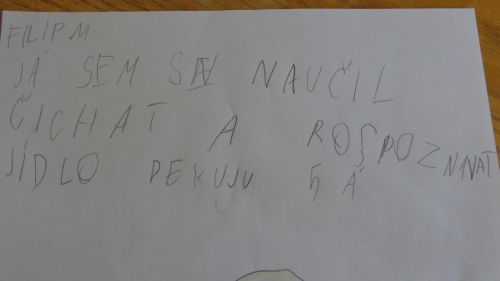 FILIP M
JÁ SEM SE NAUČIL
ČICHAT A ROSPOZNNAT
JÍDLO DEKUJU 5 Á